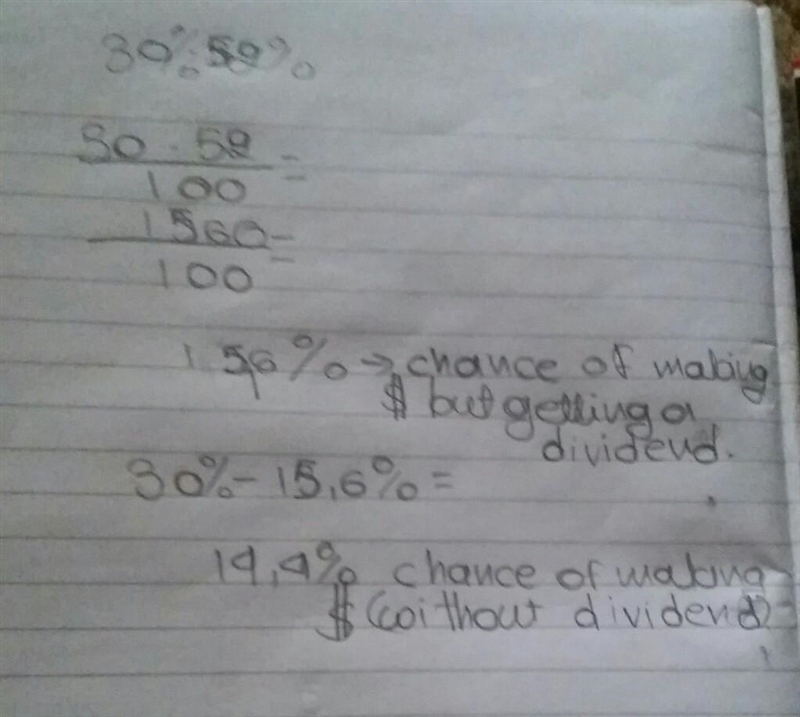 30%.52%
30.52 =
100
1560 =
100
15,6% → chance of making
$ but getting a
dividend.
30% - 15,6% =
14,4% chance of making
$ (without dividend)